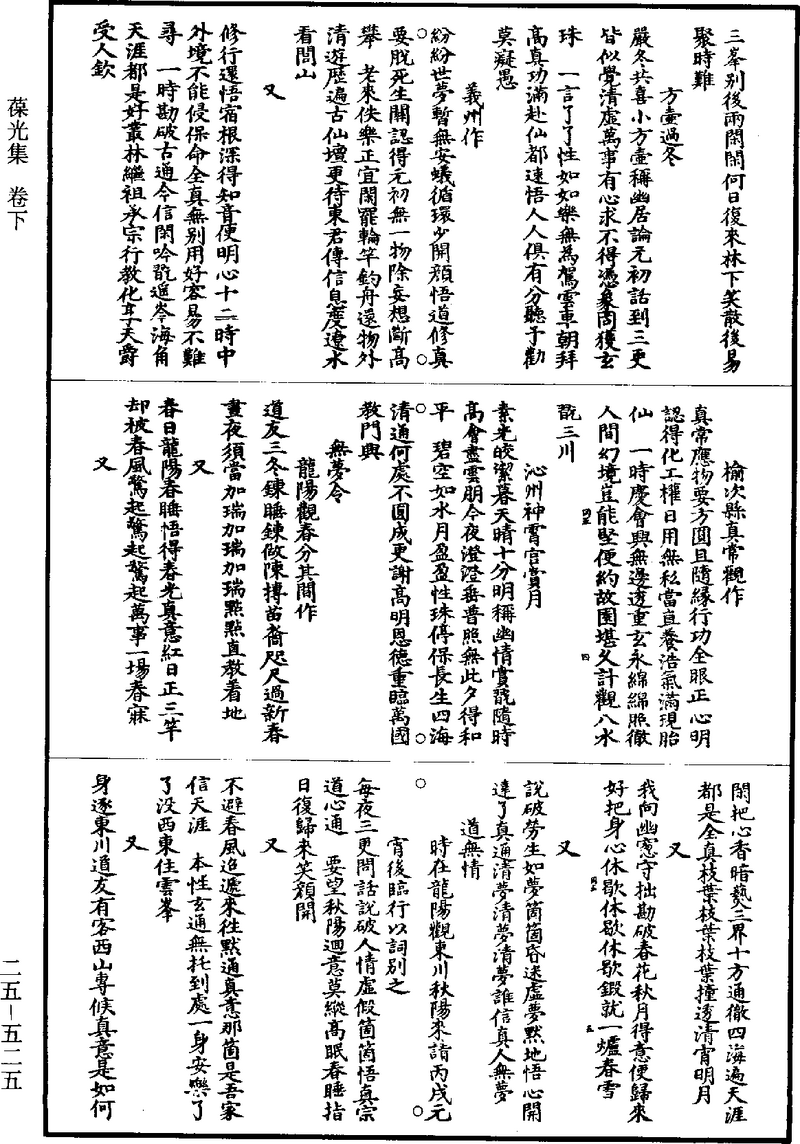 葆光集　卷下
二五―五二五
三峯别後兩閑閑何日復來林下笑散後易
聚時難
方壷過冬
嚴冬共喜小方壷稱幽居論元初話到三更
皆似覺清虚萬事有心求不得憑象罔獲玄
珠　一言了了性如如樂無為駕雲車朝拜
高真功滿赴仙都速悟人人俱有分聽予勸
莫癡愚
義州作
紛紛世夢暫無安蟻循環少開顔悟道修真
要脱死生關認得元初無一物除妄想斷高
攀　老來佚樂正宜閑罷輪竿釣舟還物外
清遊歴遍古仙壇更待東君傳信息度遼水
看閭山
又
修行還悟宿根深得知音便明心十二時中
外境不能侵保命全真無别用好容易不難
尋　一時勘破古通今信閑吟翫遥岑海角
天涯都是好叢林繼祖承宗行教化享天爵
受人欽
榆次縣真常觀作
真常應物要方圓且隨緣行功全眼正心明
認得化工權日用無私當亘養浩氣滿現胎
仙　一時慶會興無邊透重玄永綿綿照徹
人間幻境豈能堅便約故園堪久計觀八水
翫三川
沁州神霄宫賞月
素光皎潔暮天晴十分明稱幽情賞翫隨時
高會盡雲朋今夜澄澄垂普照無此夕得和
平　碧空如水月盈盈性珠停保長生四海
清通何處不圓成更謝高明恩德重臨萬國
教門興
無夢令
龍陽觀春分其間作
道友三冬鍊睡鍊倣陳摶苗裔咫尺過新春
晝夜須當加瑞加瑞加瑞點點直教着地
又
春日龍陽春睡悟得春光真意紅日正三竿
却被春風驚起驚起驚起萬事一場春寐
又
閑把心香暗爇三界十方通徹四海遍天涯
都是全真枝葉枝葉枝葉撞透清霄明月
又
我向幽窻守拙勘破春花秋月得意便歸來
好把身心休歇休歇休歇鍛就一爐春雪
又
說破勞生如夢箇箇昏迷虚夢默地悟心開
達了真通清夢清夢清夢誰信真人無夢
道無情
時在龍陽觀東川秋陽來請丙戌元
宵後臨行以詞别之
每夜三更問話說破人情虚假箇箇悟真宗
道心通　要望秋陽迴意莫縱高眠春睡指
日復歸來笑顔開
又
不避春風迢遞來往默通真意那箇是吾家
信天涯　本性玄通無托到處一身安樂了
了没西東住雲峯
又
身逐東川道友有客西山專候真意是如何